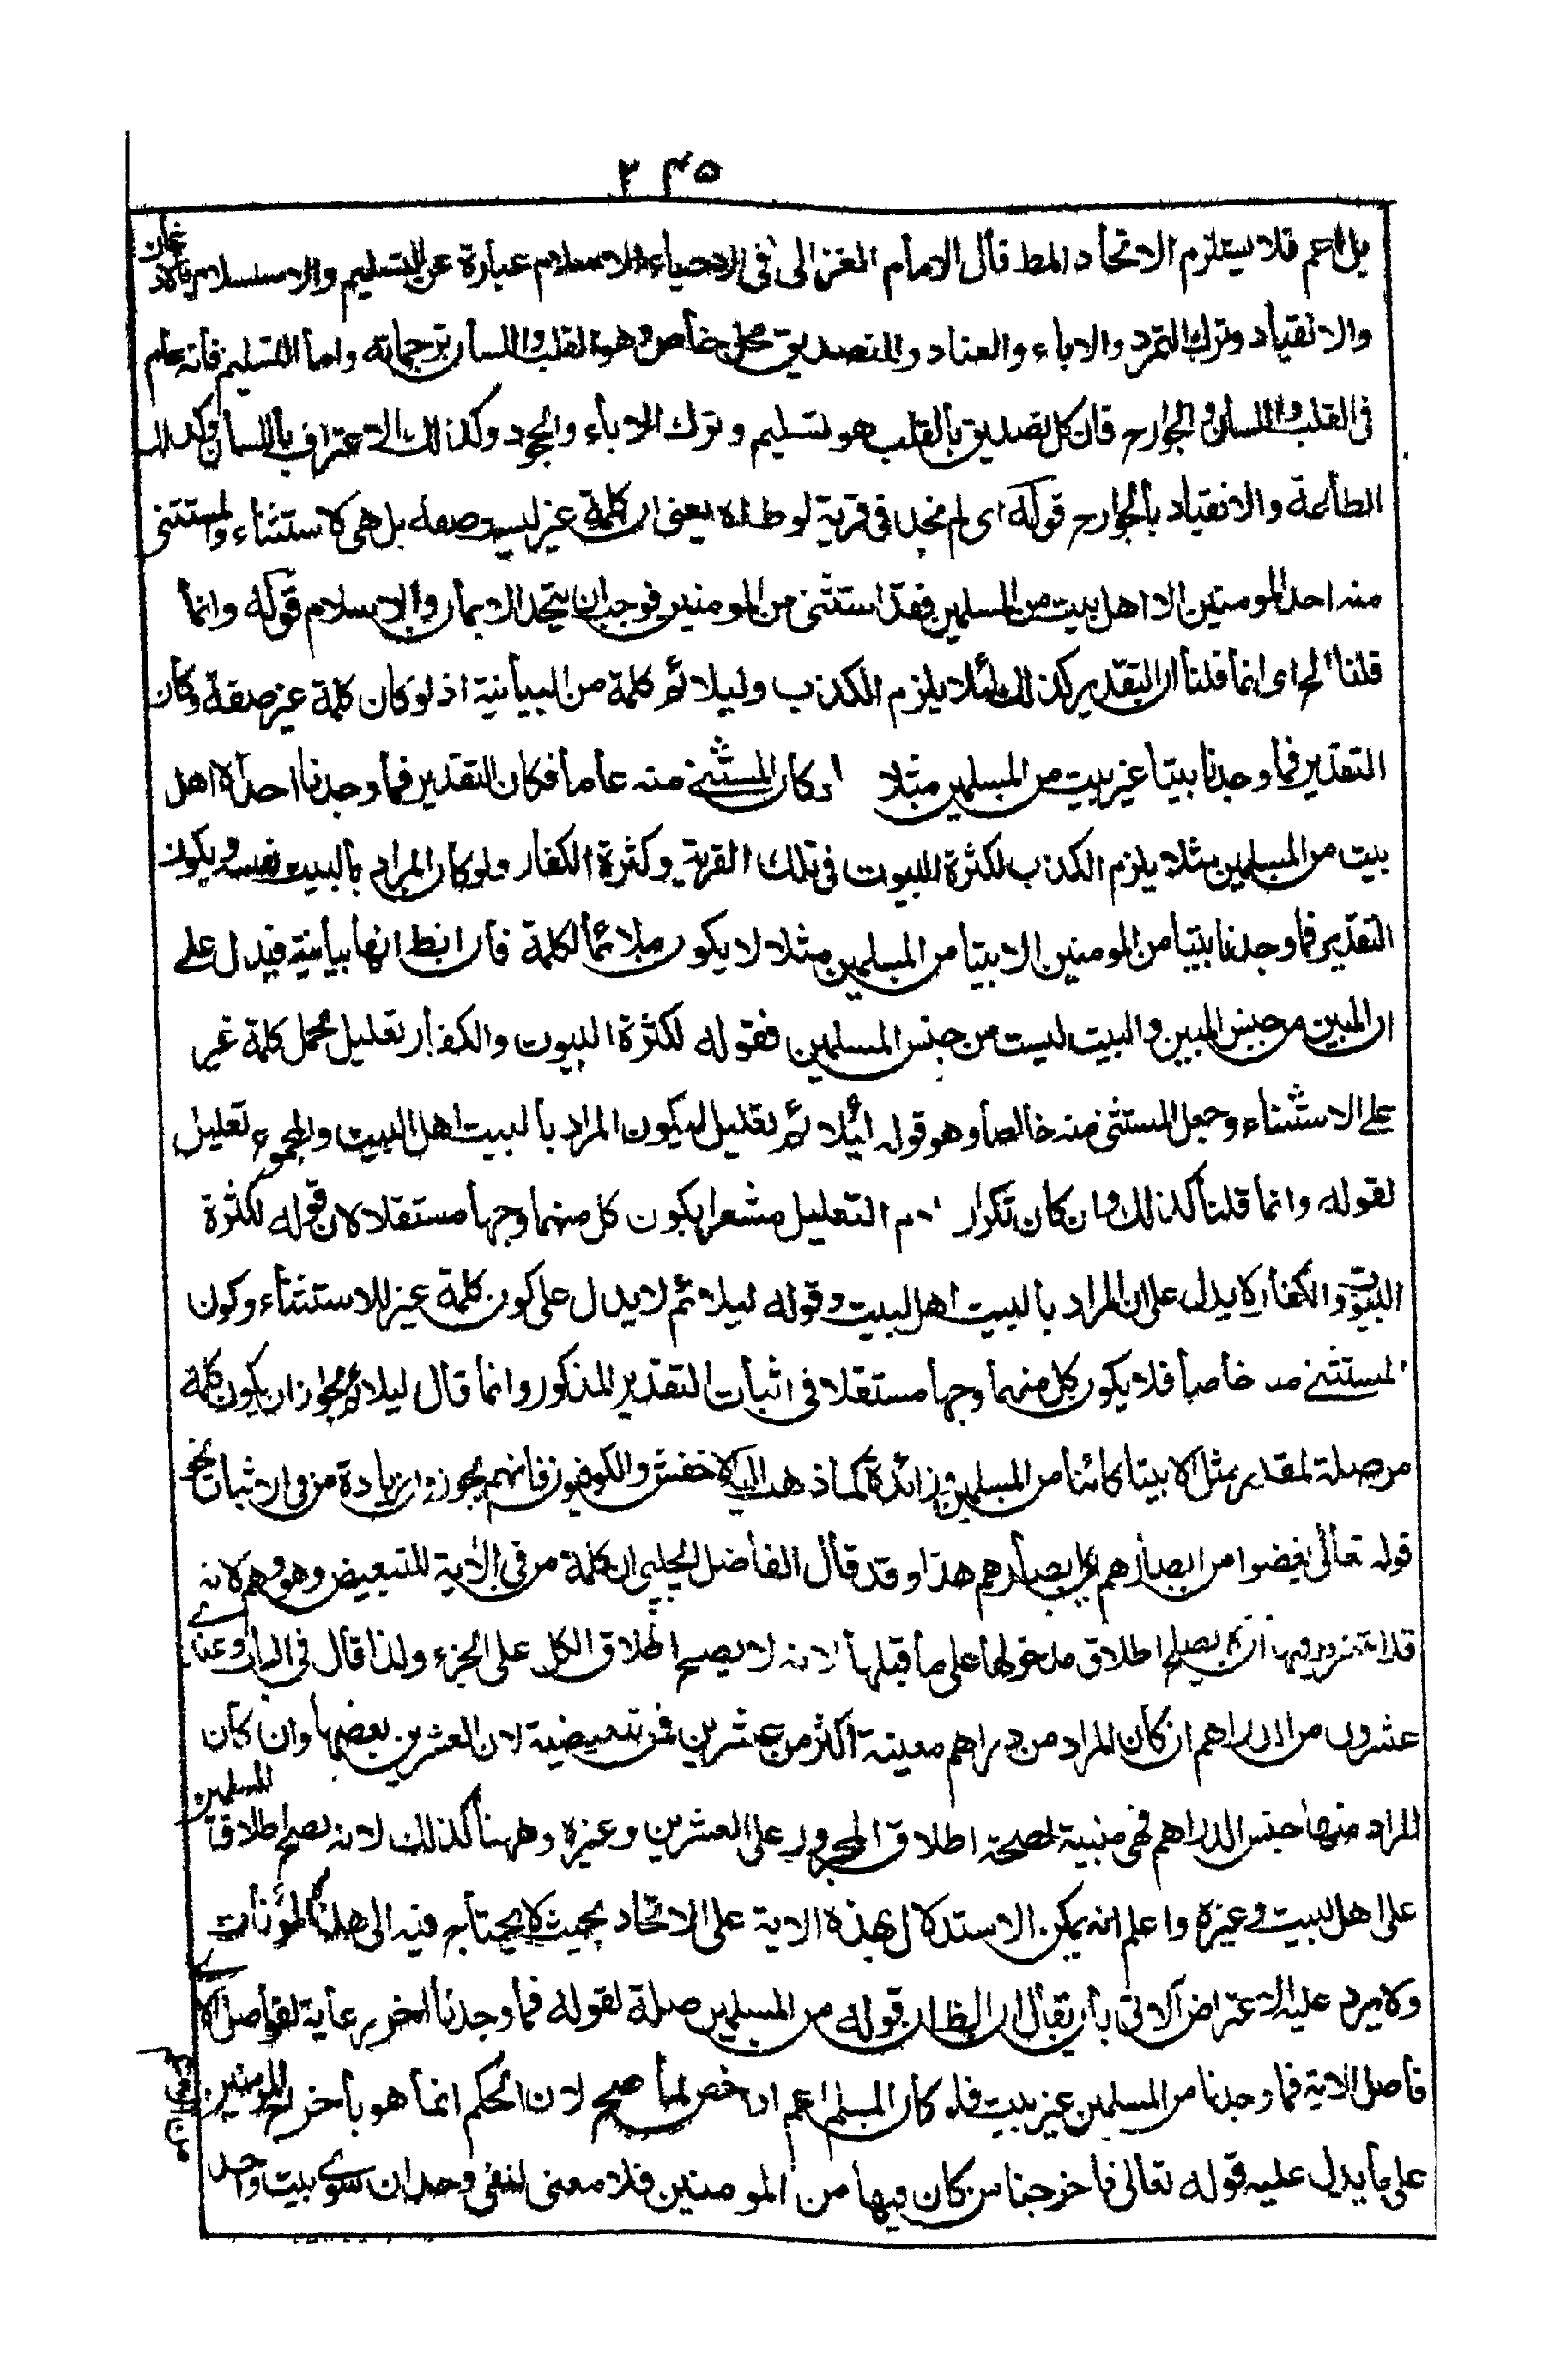 ٢٣٥
بل اعم فلا يستلزم الاتحاد المط قال الامام الغزالى فى الاحياء الاسلام عبارة عن التسليم والاستسلام بالاذعان
والانقياد وترك التمرد والاباء والعناد وللتصديق محل خاص وهو القلب واللسان ترجمانه واما التسليم فانه عام
فى القلب واللسان والجوارح فان كل تصديق بالقلب هو تسليم وترك الاباء والجحود وكذلك الاعتراف باللسان وكذلك
الطاعة والانقياد بالجوارح قوله اى لم نجد فى قرية لوط اه يعنى ان كلمة غير ليست صفة بل هى كاستثناء والمستثنى
منه احد المومنين الا اهل بيت من المسلمين فقد استثنى من المومنين فوجب ان يتحد الايمان والاسلام قوله وانما
قلنا الخ اى انما قلنا ان التقدير كذلك لئلا يلزم الكذب وليلائم كلمة من البيانية اذ لو كان كلمة غير صفة وكان
التقدير فما وجدنا بيتا غير بيت من المسلمين مثلا او كان المستثنى منه عاما فكان التقدير فما وجدنا احدا الا اهل
بيت من المسلمين مثلا يلزم الكذب لكثرة البيوت فى تلك القرية وكثرة الكفار ولو كان المراد بالبيت نفسه ويكون
التقدير فما وجدنا بيتا من المومنين الا بيتا من المسلمين مثلا لا يكون ملائما لكلمة فان الظ انها بيانية فيدل على
ان المبين من جنس المبين والبيت ليست من جنس المسلمين فقوله لكثرة البيوت والكفار تعليل لحمل كلمة غير
على الاستثناء وجعل المستثنى منه خالصا وهو قوله ليلائم تعليل ليكون المراد بالبيت اهل البيت والمجموع تعليل
لقوله وانما قلنا كذلك وان كان تكرار لام التعليل مشعرا بكون كل منهما وجها مستقلا لان قوله لكثرة
البيوت والكفار لا يدل على ان المراد بالبيت اهل البيت وقوله ليلائم لا يدل على كون كلمة غير للاستثناء وكون
المستثنى منه خاصا فلا يكون كل منهما وجها مستقلا فى اثبات التقدير المذكور وانما قال ليلائم لجواز ان يكون كلمة
من صلة لمقدر مثل الا بيتا كائنا من المسلمين وزائدة كما ذهب اليه الاخفش والكوفيون فانهم يجوزون زيادة من فى الاثبات نحو
قوله تعالى يغضوا من ابصارهم اى ابصارهم هذا وقد قال الفاضل الچلبى ان كلمة من فى الآية للتبعيض وهو وهم لانه
قد اشترط فيها ان لا يصلح اطلاق مدخولها على ما قبلها لانه لا يصح اطلاق الكل على الجزء ولذا قال فى
عشرون من الدراهم ان كان المراد من دراهم معينة اكثر من عشرين فمن تبعيضية لان العشرين بعضها وان كان
المراد منها جنس الدراهم فهى مبينة لصحة اطلاق المجرور على العشرين وغيره وههنا كذلك لانه يصح اطلاق المسلمين
على اهل البيت وغيره واعلم انه يمكن الاستدلال بهذه الاية على الاتحاد بحيث لا يحتاج فيه الى هذه المؤنات
ولا يرد عليه الاعتراض الآتى بان يقال ان الظ ان قوله من المسلمين صلة لقوله فما وجدنا اخر رعاية لفواصل الآى
فاصل الاية فما وجدنا من المسلمين غير بيت فلو كان المسلم اعم او اخص لما صح لان الحكم انما هو باخراج المومنين
على ما يدل عليه قوله تعالى فاخرجنا من كان فيها من المومنين فلا معنى لنفى وجدان سوى بيت واحد